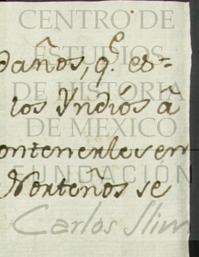 CENTRO DE
ESTUDIOS
DE HISTORIA
DE MEXICO
FUNDACIÓN
Carlos Slim
daños, q.e es=
los Yndiós â
ontenerles en
Norteños se